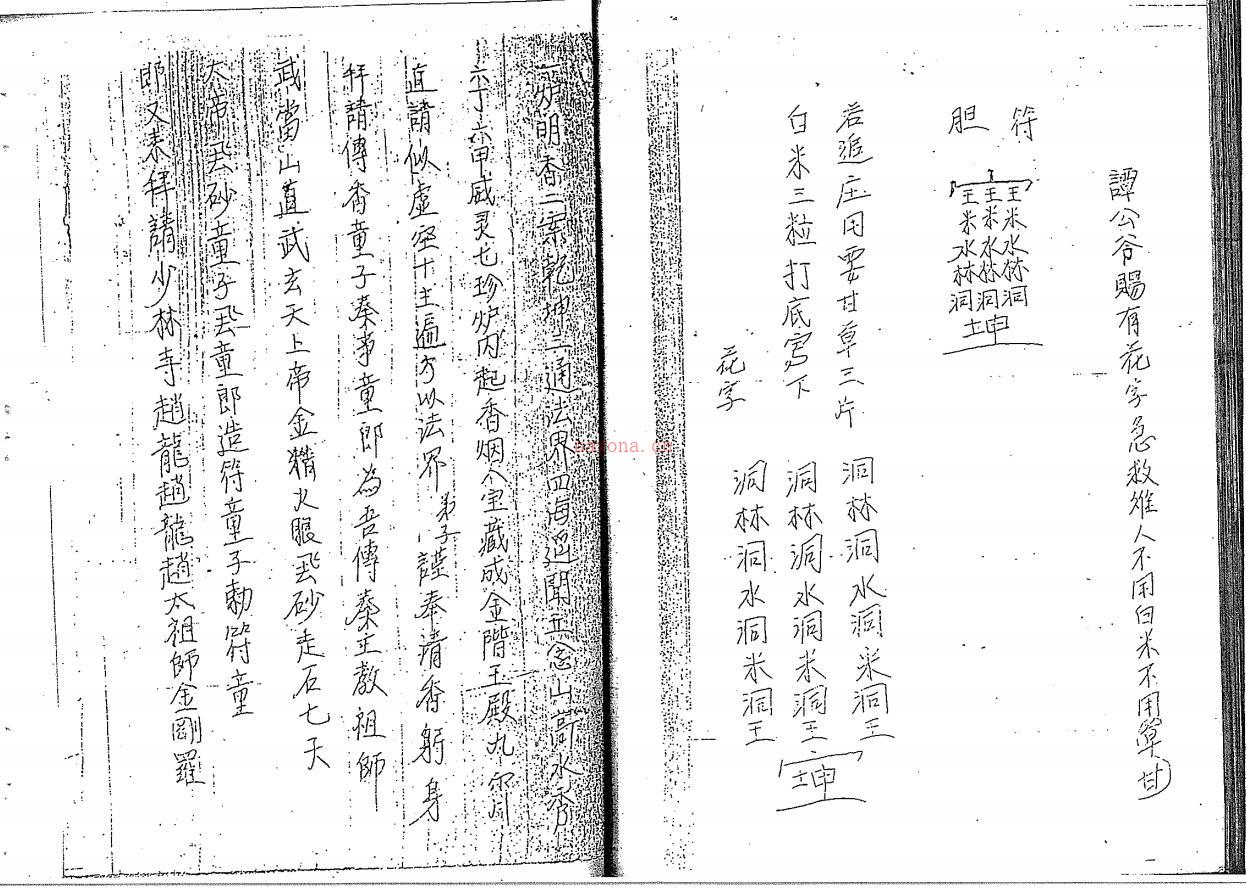 譚公爷賜有花字急救难人不用白米不用草甘
符
胆
王米水林洞
王米水林洞
王米水林洞
坤
若追庄田要甘草三片
白米三粒打底宫下
花字
洞林洞水洞米洞王
洞林洞水洞米洞王
洞林洞水洞米洞王
坤
一炉明香二案乾坤三通法界四海遥聞山高水秀
六丁六甲威灵七珍炉内起香烟八宝藏成金階王殿九
直請似虚空十主遍方以法界弟子謹奉清香躬身
拜請傳香童子奏事童郎為吾傳奏正教祖師
武當山真武玄天上帝金精火眼飛砂走石七天
大帝飛砂童子飛童郎造符童子勅符童
郎又奉拜請少林寺趙龍趙龍趙太祖師金剛羅